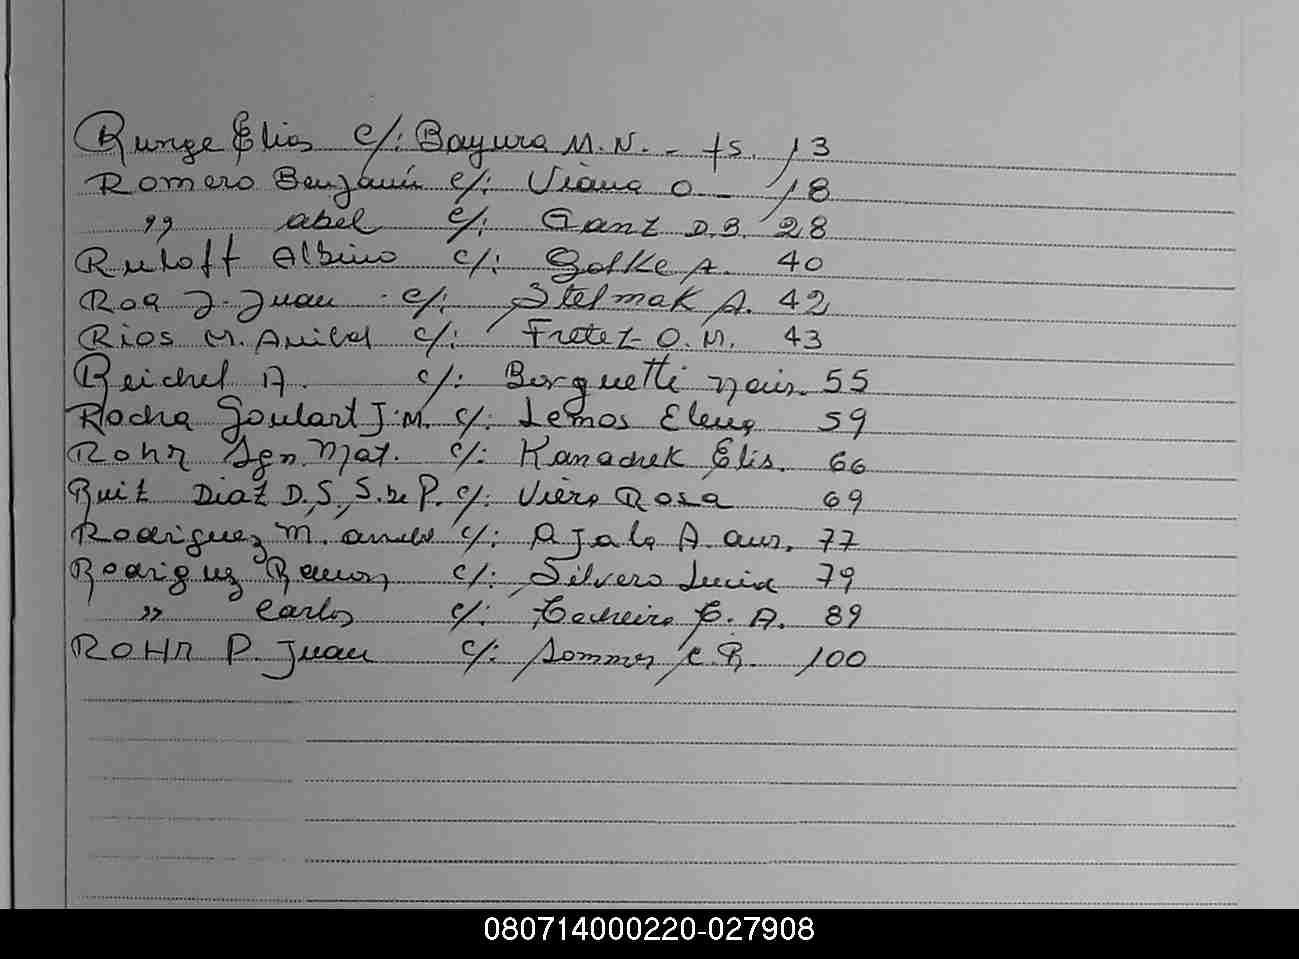 Runge Elias c/: Bayura M.N. - fs. 13
Romero Benjamín c/: Viana O. - 18
" abel c/: Ganz D.B. 28
Ruloff Albino c/: Golke A. 40
Roa J. Juan c/: Stelmak A. 42
Rios M. Anibal c/: Fretez O.M. 43
Reichel A. c/: Borguetti 55
Rocha Goulart J.M. c/: Lemos Elena 59
Rohr Ign. Mat. c/: Kanachek Elis. 66
Ruiz Diaz D.S., S. de P. c/: Viera Rosa 69
Rodriguez M. c/: Ajala A. aur. 77
Rodriguez Ramon c/: Silvero Lucia 79
" Carlos c/: C. A. 89
ROHR P. Juan c/: Sommer C.R. 100
080714000220-027908